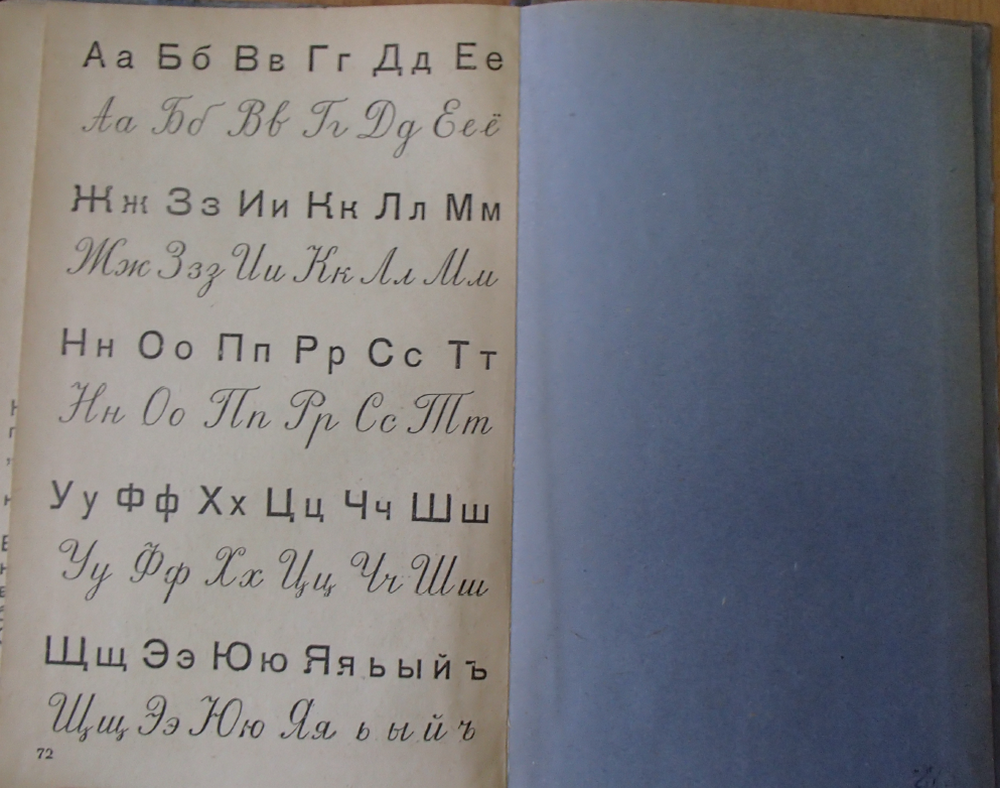 Аа Бб Вв Гг Дд Ее
Аа Бб Вв Гг Дд Ееё
Жж Зз Ии Кк Лл Мм
Жж Ззз Ии Кк Лл Мм
Нн Оо Пп Рр Сс Тт
Нн Оо Пп Рр Сс Тт
Уу Фф Хх Цц Чч Шш
Уу Фф Хх Цц Чч Шш
Щщ Ээ Юю Яя ь ы й ъ
Щщ Ээ Юю Яя ь ы й ъ
72